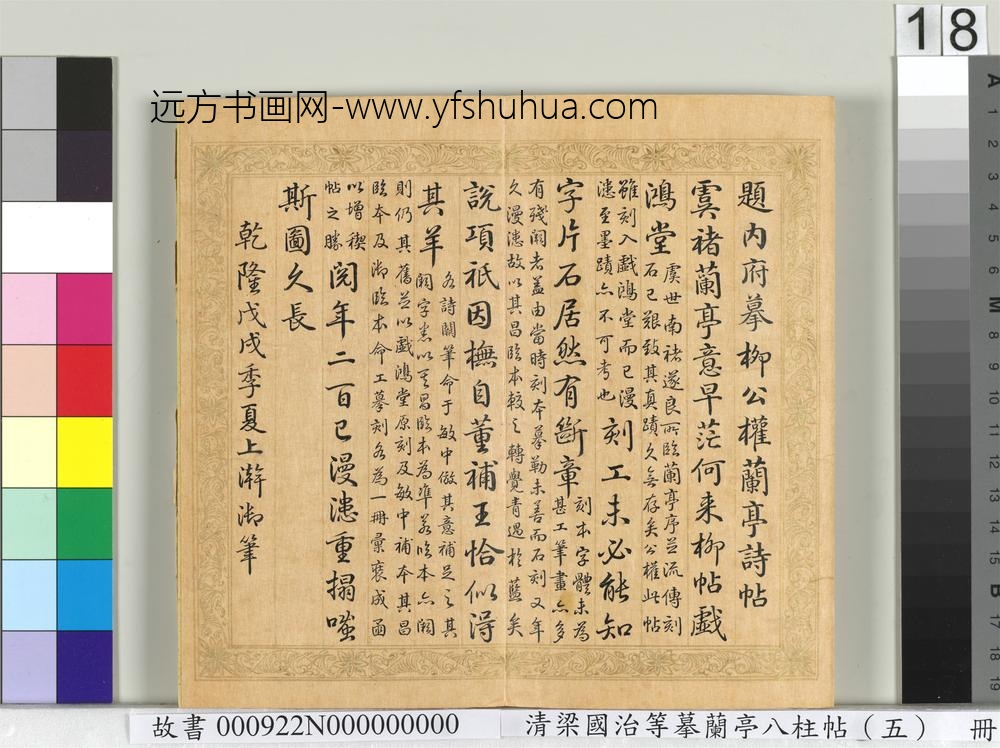 远方书画网-www.yfshuhua.com
18
題內府摹柳公權蘭亭詩帖
虞褚蘭亭意早茫何来柳帖戲
鴻堂
虞世南褚遂良所臨蘭亭序並流傳刻
石已艱致其真蹟久無存矣公權此帖
雖刻入戲鴻堂而已漫
漶至墨蹟亦不可考也
刻工未必能知
字片石居然有斷章
刻本字體未為
甚工筆畫亦多
有殘闕者蓋由當時刻本摹勒未善而石刻又年
久漫漶故以其昌臨本較之轉覺青過於藍矣
說項祇因撫自董補王恰似得
其羊
各詩闕筆命于敏中倣其意補足之其
闕字悉以其昌臨本為準若臨本亦闕
則仍其舊並以戲鴻堂原刻及敏中補本其昌
臨本及御臨本命工摹刻各為一冊彙裒成函
以增稧
帖之勝
閱年二百已漫漶重搨嗤
斯圖久長
乾隆戊戌季夏上澣御筆
故書 000922N000000000
清梁國治等摹蘭亭八柱帖（五） 冊